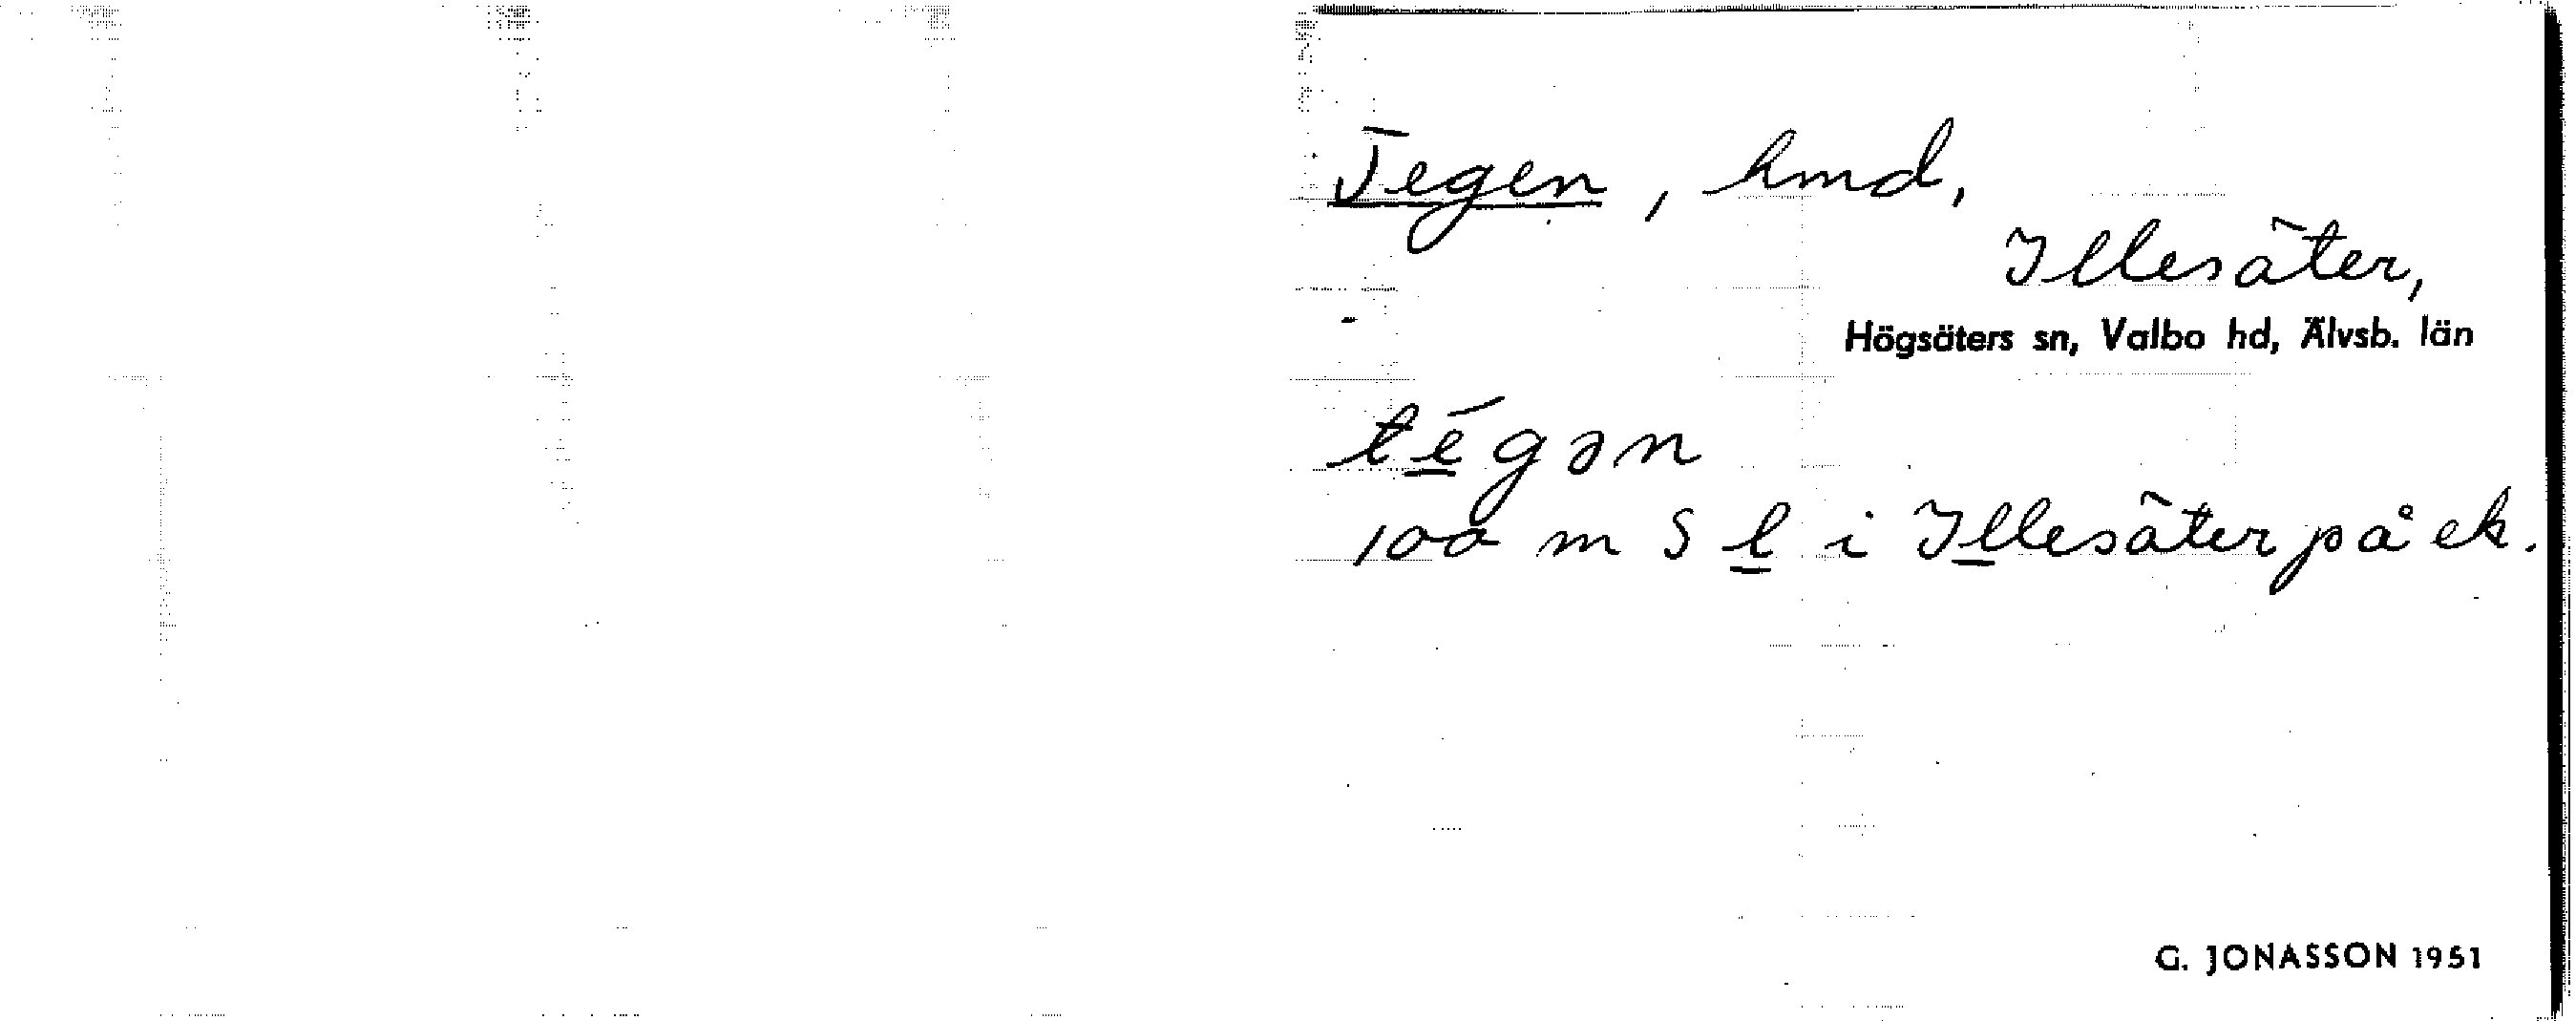 Tegen, hmd,
Illesäter,
Högsäters sn, Valbo hd, Älvsb. län
tégən
100 m S l i Illesäter på ek.
G. JONASSON 1951